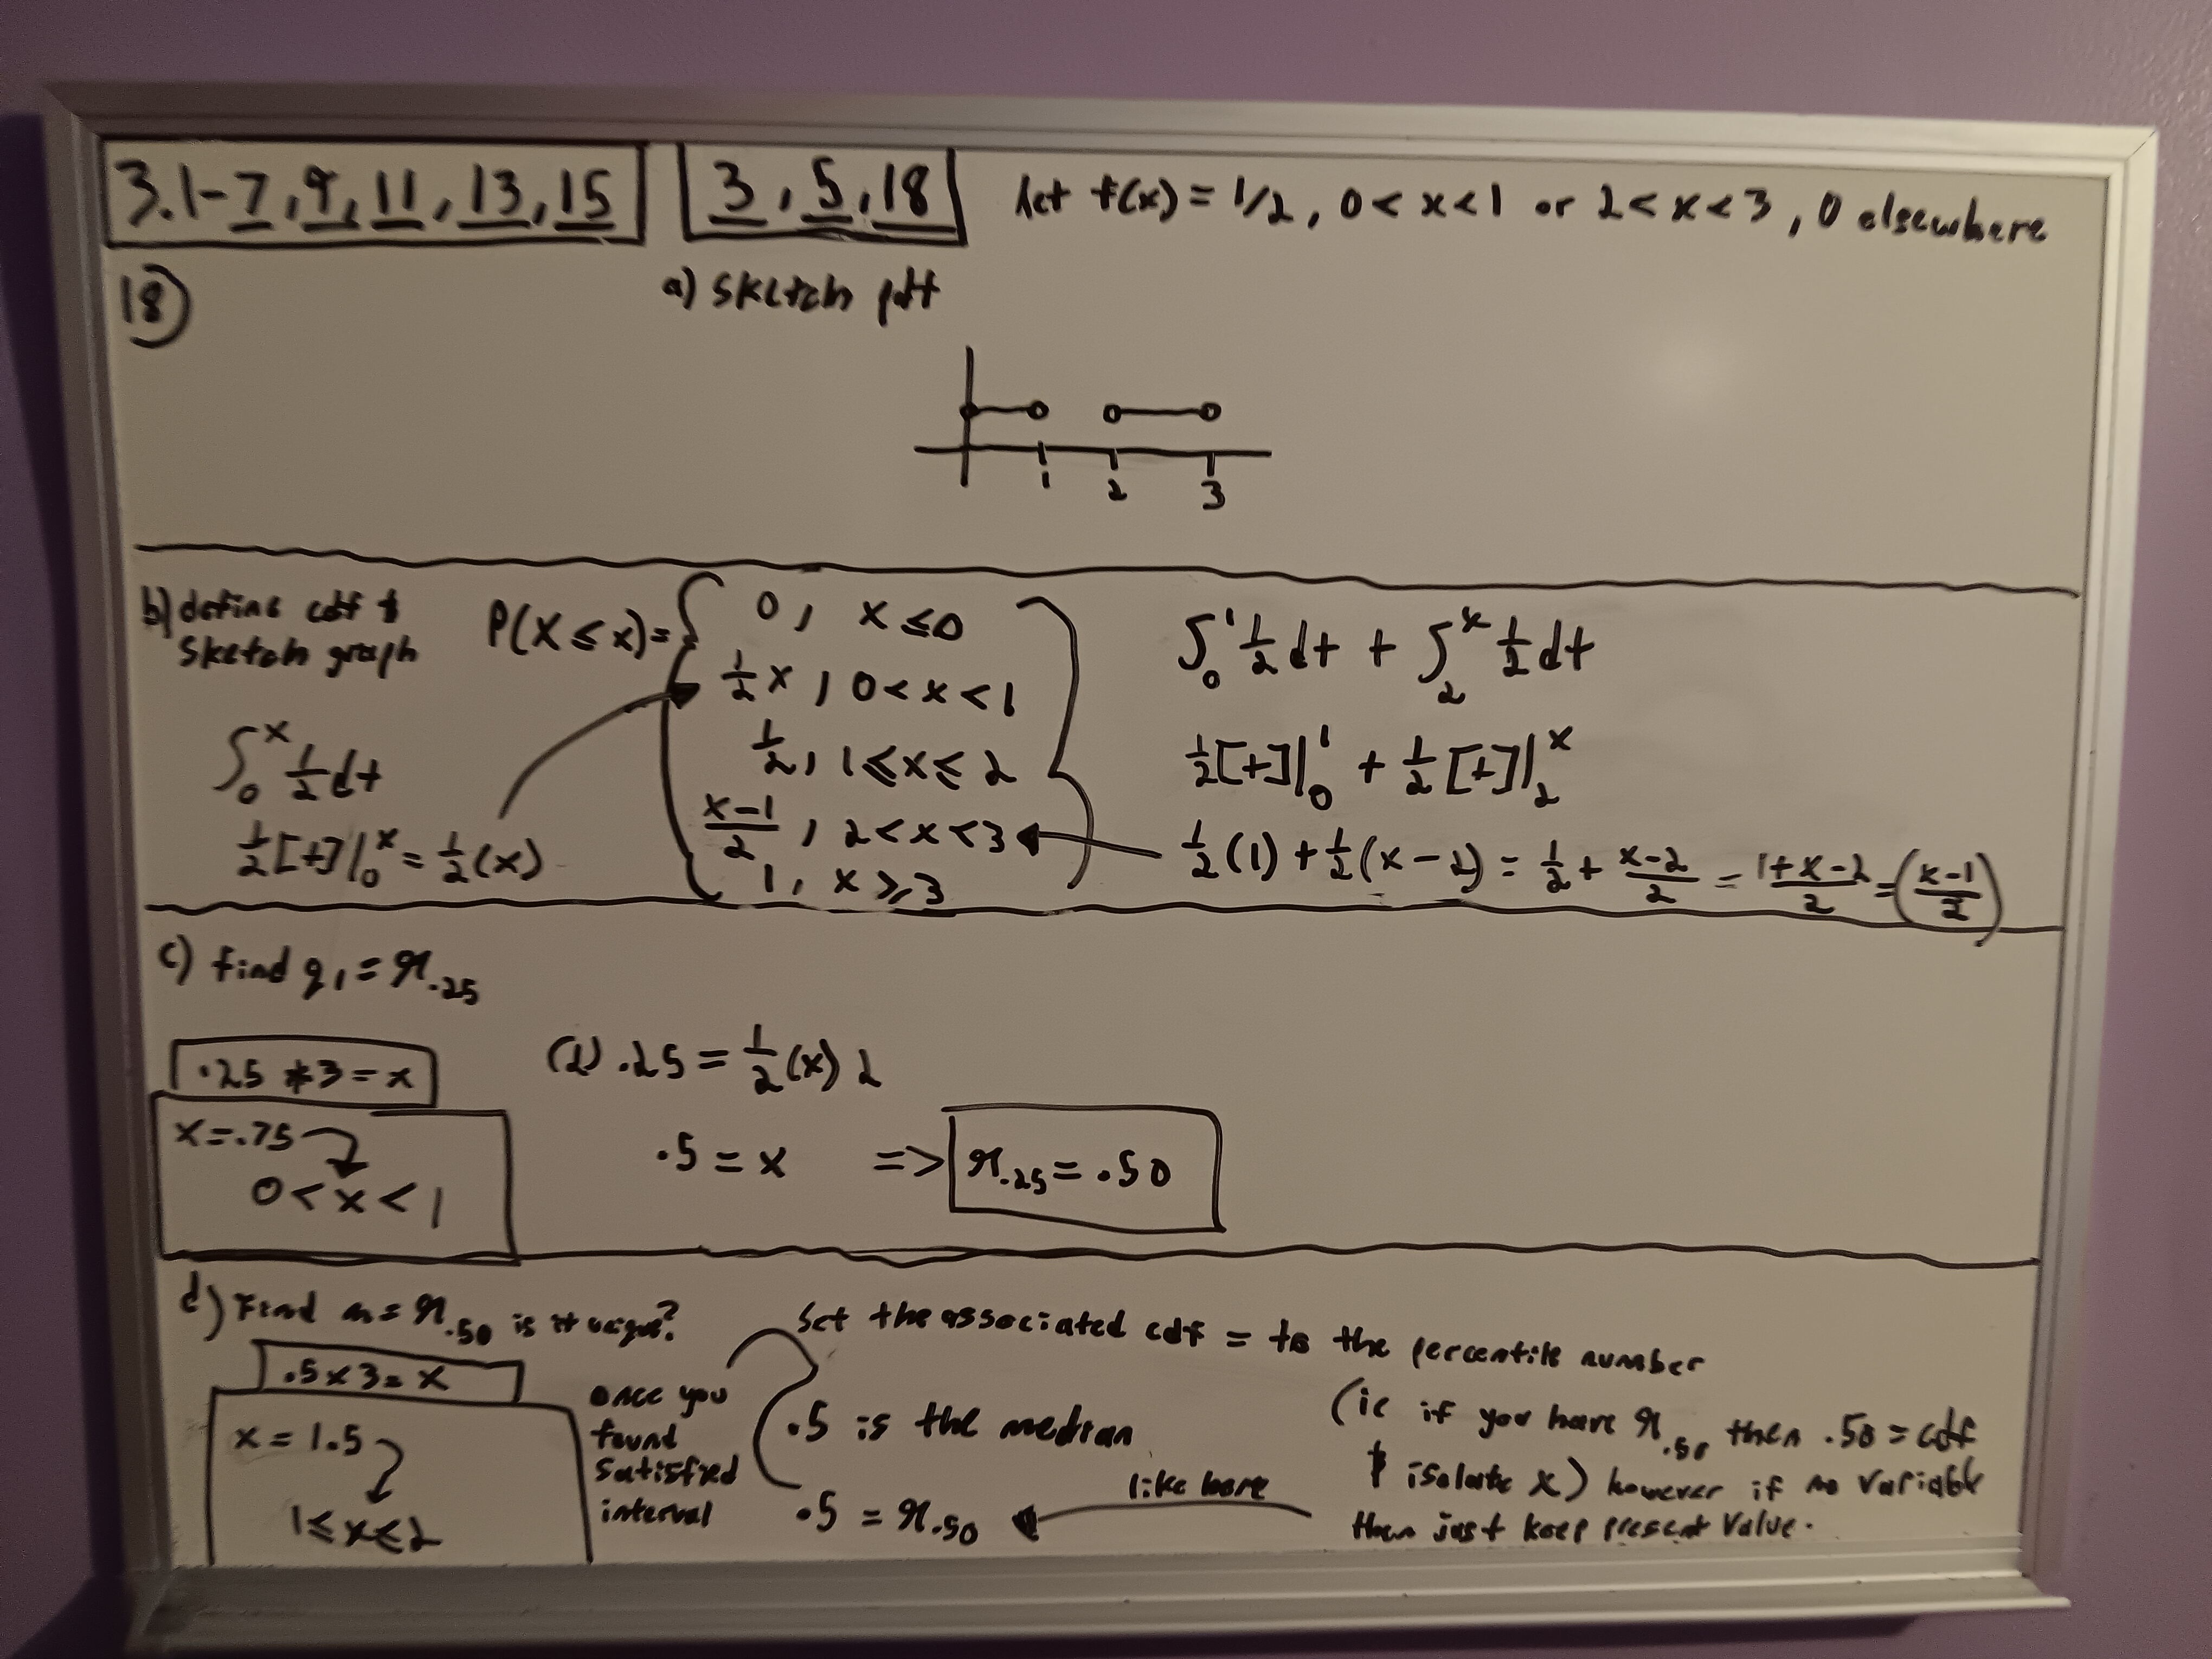 3.1-7, 9, 11, 13, 15 3, 5, 18 let f(x) = 1/2, 0 < x < 1 or 2 < x < 3, 0 elsewhere
18)
a) Sketch pdf
1 2 3
b) define cdf & sketch graph
P(X ≤ x) = { 0, x ≤ 0
1/2 x, 0 < x < 1
1/2, 1 ≤ x ≤ 2
x-1/2, 2 < x < 3
1, x ≥ 3
∫₀ˣ 1/2 dt
1/2 [t]|₀ˣ = 1/2 (x)
∫₀¹ 1/2 dt + ∫₂ˣ 1/2 dt
1/2 [t]|₀¹ + 1/2 [t]|₂ˣ
1/2 (1) + 1/2 (x-2) = 1/2 + x-2/2 = 1+x-2/2 = (x-1/2)
c) find q₁ = π.25
.25 * 3 = x
x = .75
0 < x < 1
(2) .25 = 1/2 (x) 2
.5 = x => π.25 = .50
d) Find m = π.50 is it
.5 x 3 = x
x = 1.5
1 ≤ x ≤ 2
once you
found
satisfied
interval
Set the associated cdf = to the percentile number
(ie if you have π.50 then .50 = cdf
& isolate x) however if no variable
then just keep present value.
.5 is the median
.5 = π.50
like here